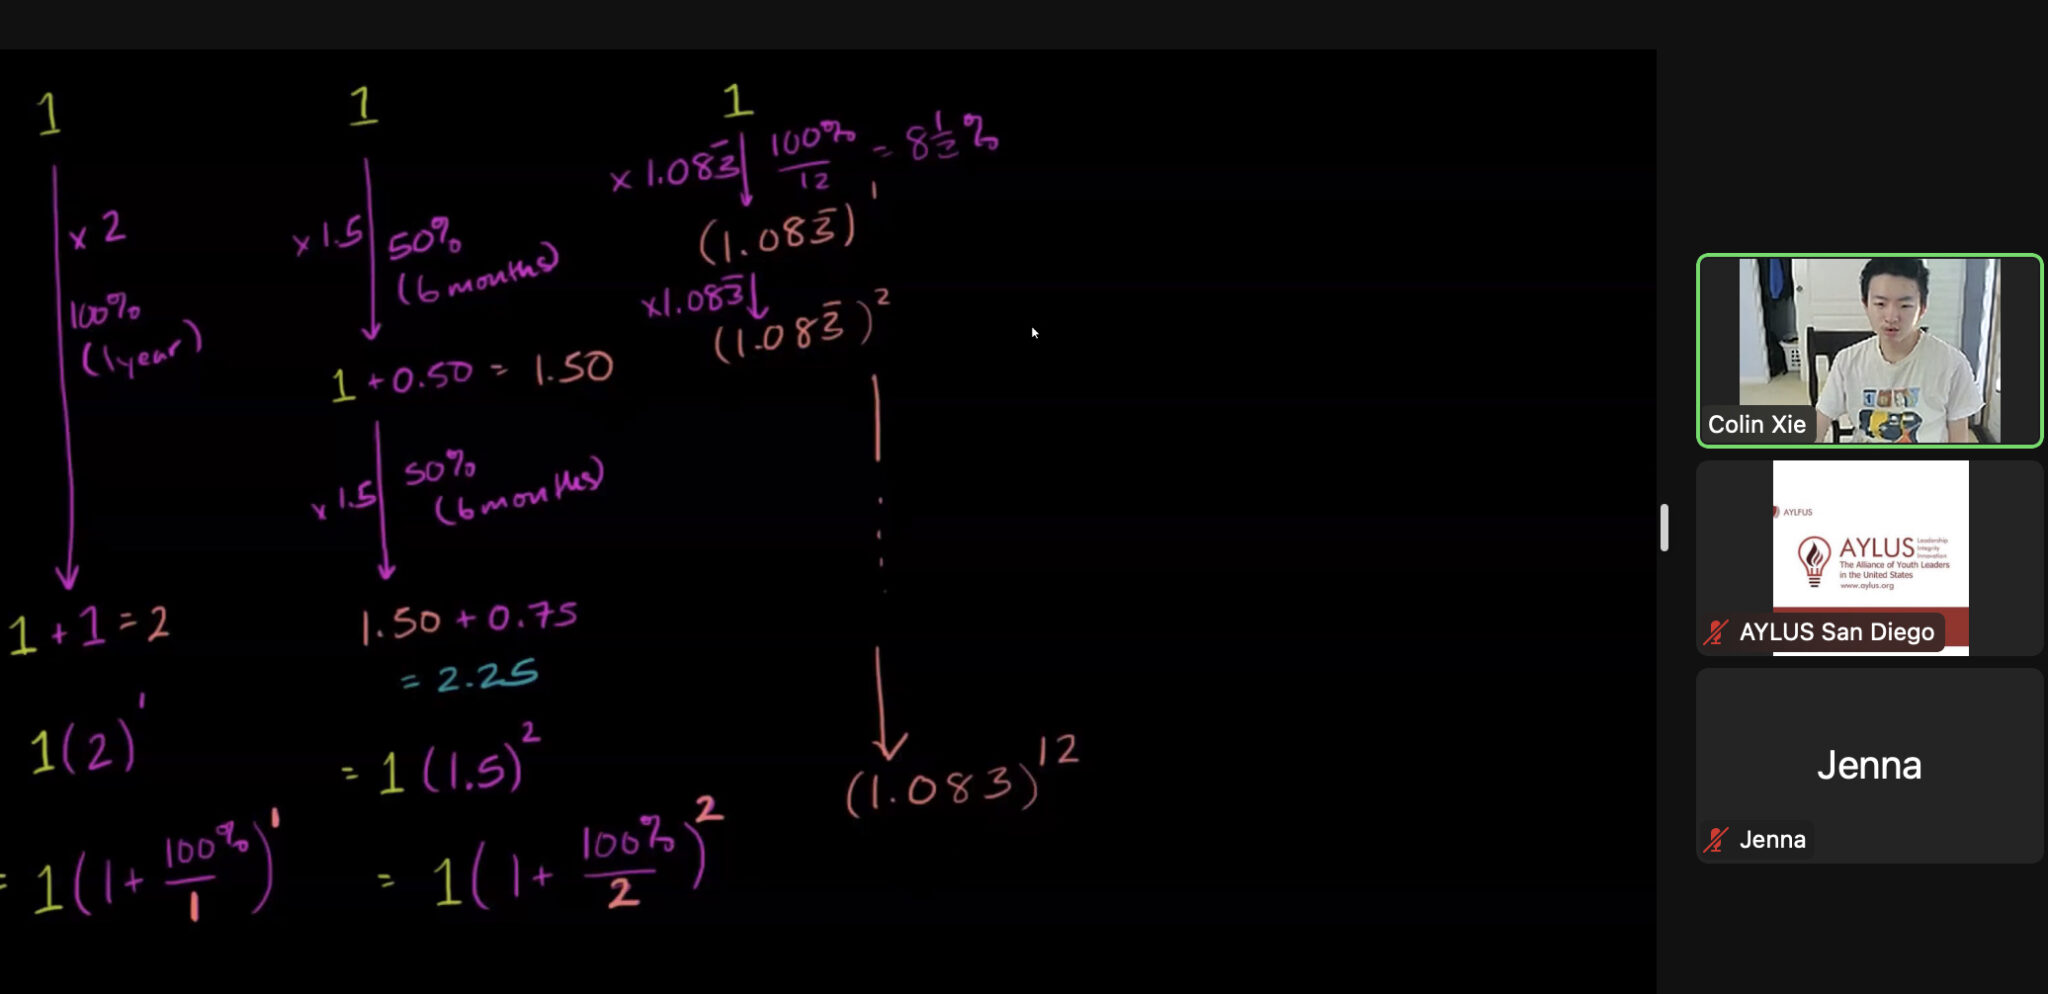 1
× 2
100%
(1 year)
1 + 1 = 2
1(2)¹
= 1(1 + 100%/1)¹
1
× 1.5
50%
(6 months)
1 + 0.50 = 1.50
× 1.5
50%
(6 months)
1.50 + 0.75
= 2.25
= 1(1.5)²
= 1(1 + 100%/2)²
1
× 1.083̅ 100%/12 = 8 1/3%
(1.083̅)¹
×1.083̅
(1.083̅)²
(1.083)¹²
Colin Xie
AYLFUS
AYLUS
Leadership
Integrity
Innovation
The Alliance of Youth Leaders
in the United States
www.aylus.org
AYLUS San Diego
Jenna
Jenna